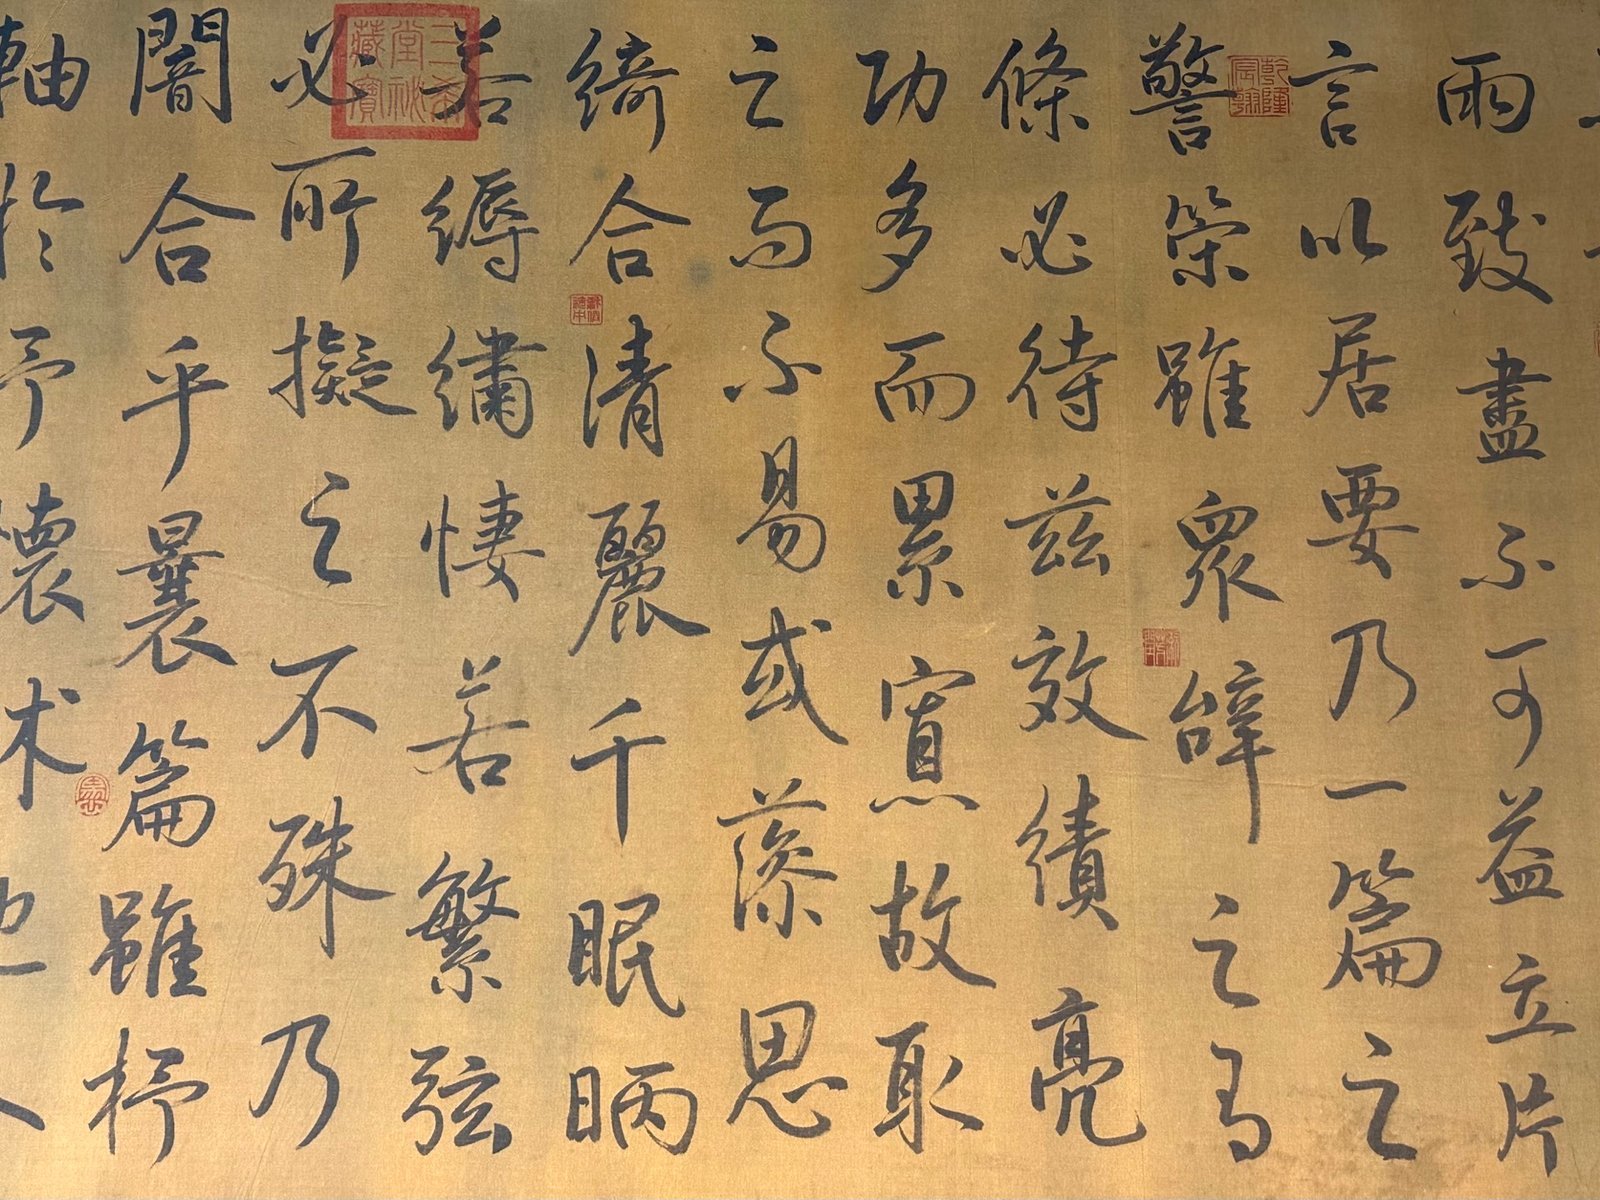 兩致盡不可益立片
言以居要乃一篇之
警策雖眾辭之有
條必待茲效績亮
功多而累寡故取
足而不易或藻思
綺合清麗千眠昞
若縟繡悽若繁弦
必所擬之不殊乃
闇合乎曩篇雖杼
軸於予懷
乾隆宸翰